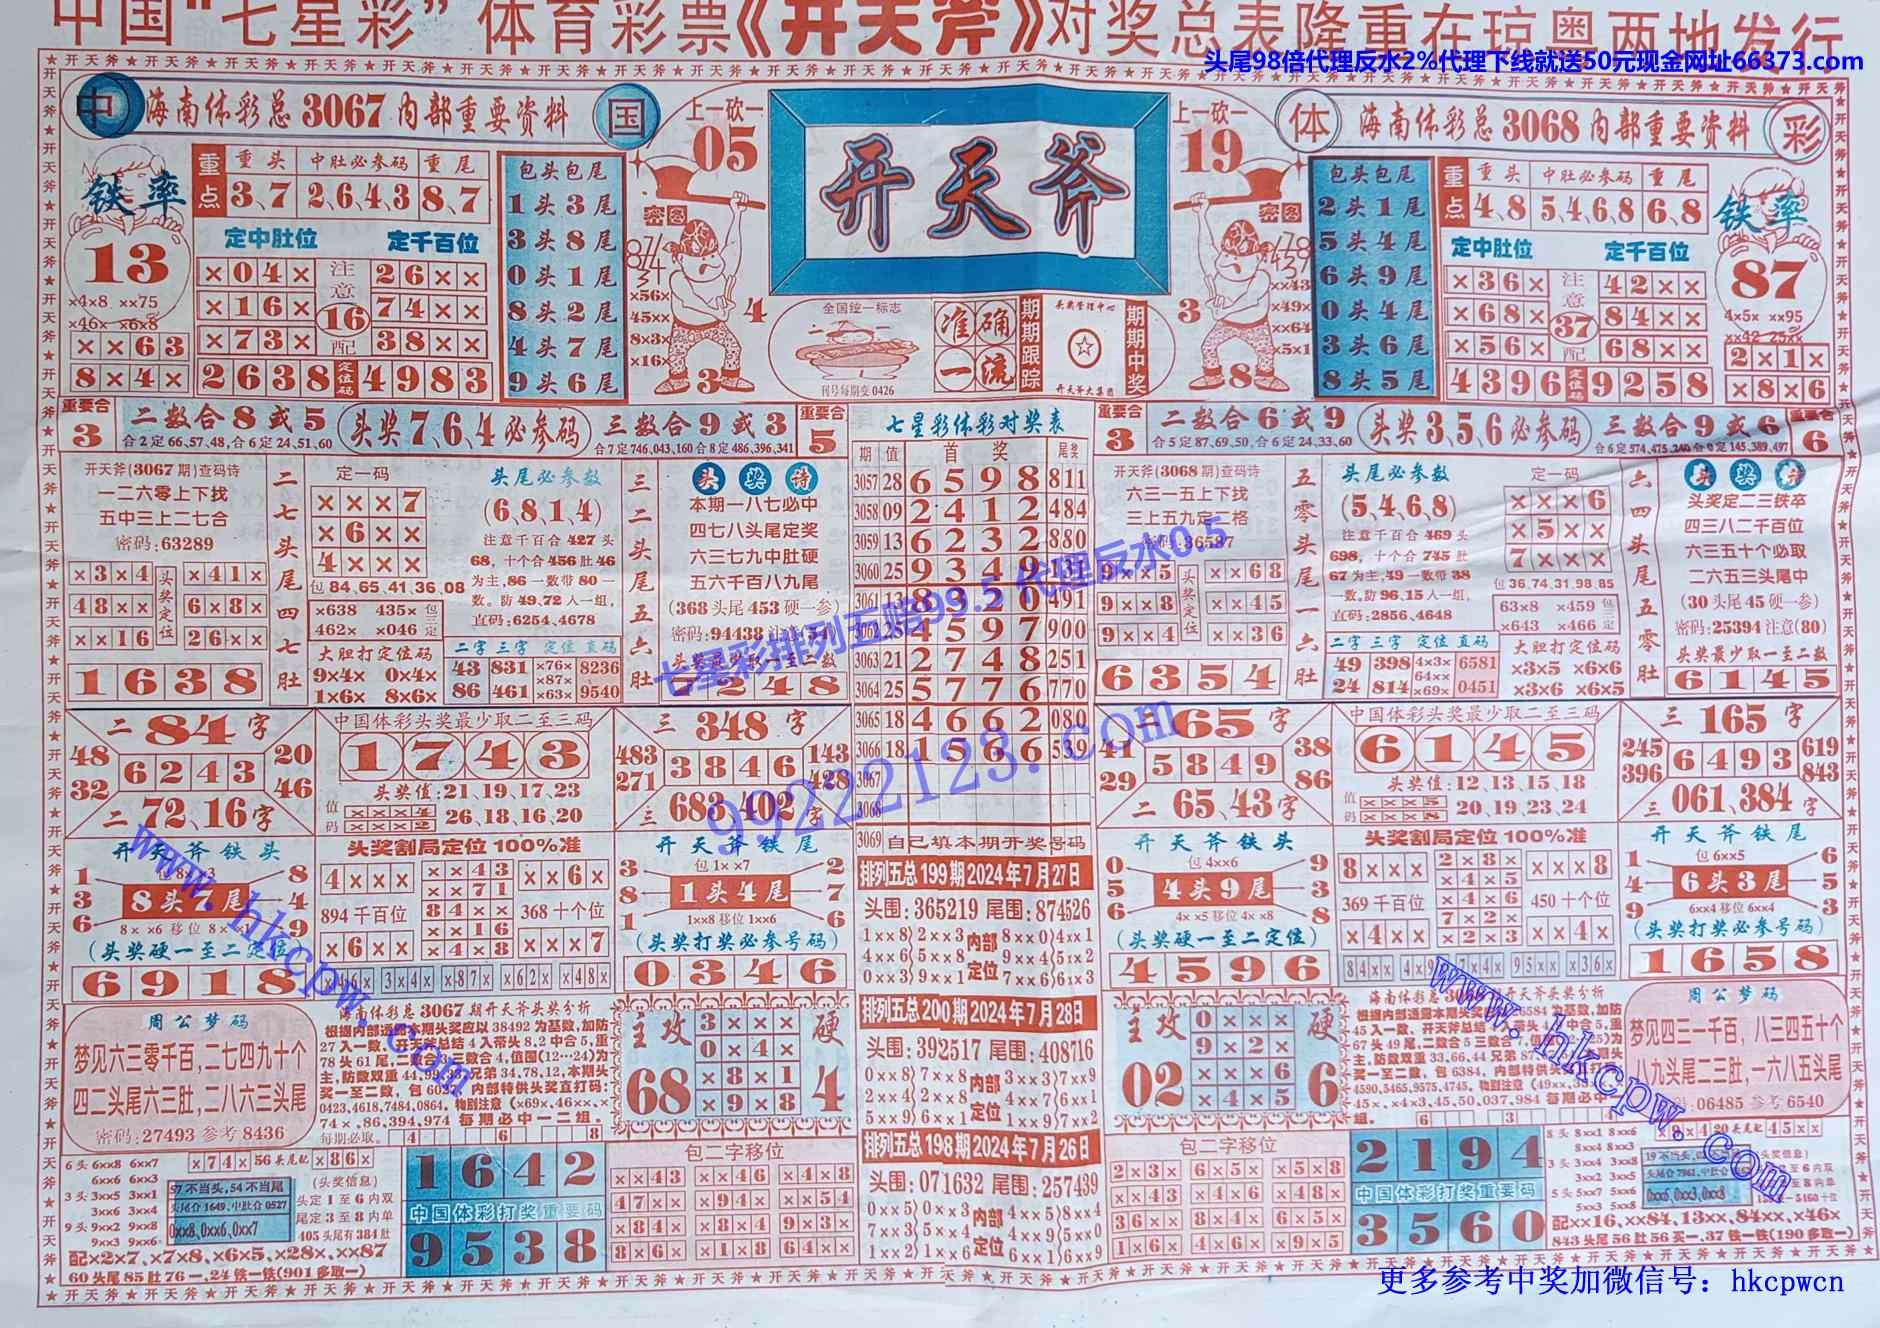 中国“七星彩”体育彩票《开天斧》对奖总表隆重在琼粤两地发行
头尾98倍代理反水2%代理下线就送50元现金网址66373.com
中
海南体彩总3067内部重要资料
国
上一砍一
05
开天斧
上一砍一
19
体
海南体彩总3068内部重要资料
彩
铁率
13
重点
重头 中肚必参码 重尾
3、7 2、6、4、3 8、7
定中肚位 定千百位
×04× 26××
×16× 74××
×73× 38××
注意 16 配
2638 定位码 4983
×4×8 ××75
×46× ×6×8
××63
8×4×
包头包尾
1头3尾
3头8尾
0头1尾
8头2尾
4头7尾
9头6尾
密图
×56×
45××
8×3×
×16×
4
3
全国统一标志
刊号每期变0426
准确一流
期期跟踪
期期中奖
密图
××43
×49×
××64
×5×1
3
8
包头包尾
2头1尾
5头4尾
6头9尾
0头4尾
3头6尾
8头5尾
重点
重头 中肚必参码 重尾
4、8 5、4、6、8 6、8
定中肚位 定千百位
×36× 42××
×68× 84××
×56× 68××
注意 37 配
4396 定位码 9258
铁率
87
4×5× ××95
××42 25××
2×1×
×8×6
重要合
3
二数合8或5
合2定66,57,48,合6定24,51,60
头奖7、6、4必参码
三数合9或3
合7定746,043,160合8定486,396,341
重要合
5
七星彩体彩对奖表
重要合
3
二数合6或9
合5定87,69,50,合6定24,33,60
头奖3、5、6必参码
三数合9或6
重要合
6
期 值 首奖 尾奖
3057 28 6598 811
3058 09 2412 484
3059 13 6232 880
3060 25 9349
3061 13 8320 491
3062 4597 900
3063 21 2748 251
3064 25 5776 770
3065 18 4662 080
3066 18 1566 539
3067
3068
3069 自己填本期开奖号码
开天斧(3067期)查码诗
一二六零上下找
五中三上二七合
密码:63289
×3×4 ×41×
48×× 6×8×
××16 26××
头奖定位
1638
二七头尾四七肚
定一码
×××7
×6××
4×××
包84、65、41、36、08
×638 435×
462× ×046
包三定
大胆打定位码
9×4× 0×4×
1×6× 8×6×
头尾必参数
(6、8、1、4)
注意千百合427头
68,十个合456肚46
为主,86一数带80一
数。防49、72人一组,
直码:6254、4678
二字 三字 定位 直码
43 831 ×76× 8236
×87×
86 461 ×63× 9540
三二头尾五六肚
头奖诗
本期一八七必中
四七八头尾定奖
六三七九中肚硬
五六千百八九尾
(368头尾453硬一参)
密码:94438注意(54)
头奖最少取一至二数
6248
七星彩排列五赔99.5 代理反水0.5
99222123.com
开天斧(3068期)查码诗
六三一五上下找
三上五九定二格
密码:36587
9××5 ××68
9××8 ××45
9××4 ××36
头奖定位
6354
五零头尾一六肚
头尾必参数
(5、4、6、8)
注意千百合469头
698,十个合745肚
67为主,49一数带38
一数,防96、15人一组,
直码:2856、4648
二字 三字 定位 直码
49 398 4×3× 6581
64××
24 814 ×69× 0451
定一码
×××6
×5××
7×××
包36、74、31、98、85
63×8 ×459
×643 ×466
包三定
大胆打定位码
×3×5 ×6×6
×3×6 ×6×5
六四头尾五零肚
头奖诗
头奖定二三铁卒
四三八二千百位
六三五十个必取
二六五三头尾中
(30头尾45硬一参)
密码:25394注意(80)
头奖最少取一至二数
6145
二84字
48 20
6243
32 46
二72、16字
中国体彩头奖最少取二至三码
1743
头奖值:21、19、17、23
值码 ×××4 26、18、16、20
×××2
三348字
483 143
3846
271 428
三683、402字
二65字
41 38
5849
29 86
二65、43字
中国体彩头奖最少取二至三码
6145
头奖值:12、13、15、18
20、19、23、24
三165字
245 619
6493
396 843
三061、384字
开天斧铁头
1 8
3 8头7尾 4
6 9
(头奖硬一至二定位)
6918
头奖割局定位100%准
4××× ××43 ××6×
××71
894千百位 84×× 368十个位
××16
×6×× ×4×8 ×××7
3×4× ×87× ×62× ×48×
开天斧铁尾
包1××7
3 2
8 1头4尾 7
1 6
1××8移位1××6
(头奖打奖必参号码)
0346
开天斧铁头
包4××6
0 9
5 4头9尾 3
6 8
4××5移位4××8
(头奖硬一至二定位)
4596
头奖割局定位100%准
8××× 2×8× ××8×
×4×5
369千百位 ×4×6 450十个位
7×2×
×4×× ×2×3 ××4×
95×× ×36×
开天斧铁尾
包6××5
1 6
4 6头3尾 5
9 3
6××4移位6××4
(头奖打奖必参号码)
1658
排列五总199期2024年7月27日
头围:365219 尾围:874526
1××8 2××3 内部 8××0 4××1
4××6 5××8 定位 9××4 5××2
0××3 9××1 7××6 6××3
排列五总200期2024年7月28日
头围:392517 尾围:408716
0××8 7××8 内部 3××3 7××9
2××4 2××8 4××7 6××1
5××9 6××1 定位 9××1 7××2
排列五总198期2024年7月26日
头围:071632 尾围:257439
0××5 0××3 内部 4××5 8××4
7××3 5××4 9××7 5××0
1××2 1××6 定位 6××1 6××9
周公梦码
梦见六三零千百,二七四九十个
四二头尾六三肚,二八六三头尾
密码:27493 参考8436
海南体彩总3067期开天斧头奖分析
根据内部透露本期头奖应以38492为基数,加防
27入一数、开天斧总结4入带头8.2中合5,重
0423,4618,7484,0864。
74×,86,394,974 每期必中一二组。
每期必取。 4 6 8
主攻 3××× 硬
0×4×
68 ×8×1 4
×9×8
主攻 0××× 硬
9×2×
02 ×××6 6
×4×5
海南体彩总3068期开天斧头奖分析
周公梦码
梦见四三一千百,八三四五十个
八九头尾二三肚,一六八五头尾
密码:06485 参考6540
6头 6××8 6××7
6××6 6××3
3头 3××5 3××1
3××6 3××4
9头 9××2 9××8
9××3 9××6
×74× 56头尾配 ×86×
57不当头,54不当尾
头尾合1649、中肚合0527
0××8、0××6、0××7
(头奖信息)
头定1至6内双
尾定3至8内单
405头尾有384肚
配××2×7、×7×8、×6×5、×28×、××87
60头尾85肚76一、24铁一铁(901多取一)
1642
中国体彩打奖重要码
9538
包二字移位
××43 ×46× ×4×8
47×× ×94× ××54
×84× ×84× 9×3×
8×6× ×1×8 64××
包二字移位
2×3× 6×5× ×5×8
××43 ×4×6 ×48×
36×× 8×4× 6×5×
1×6× 4×6× ×9×5
2194
中国体彩打奖重要码
3560
8头 8××1 8××6
8××4 8××3
3头 3××4 3××5
3××2 3××5
5头 5××7 5××6
5××2 5××3
0××6、0××3、0××8
配××16、××84、13××、84××、×46×
843头尾56肚56买一、37铁一铁(190多取一)
www.hkcpw.com
www.hkcpw.com
更多参考中奖加微信号：hkcpwcn